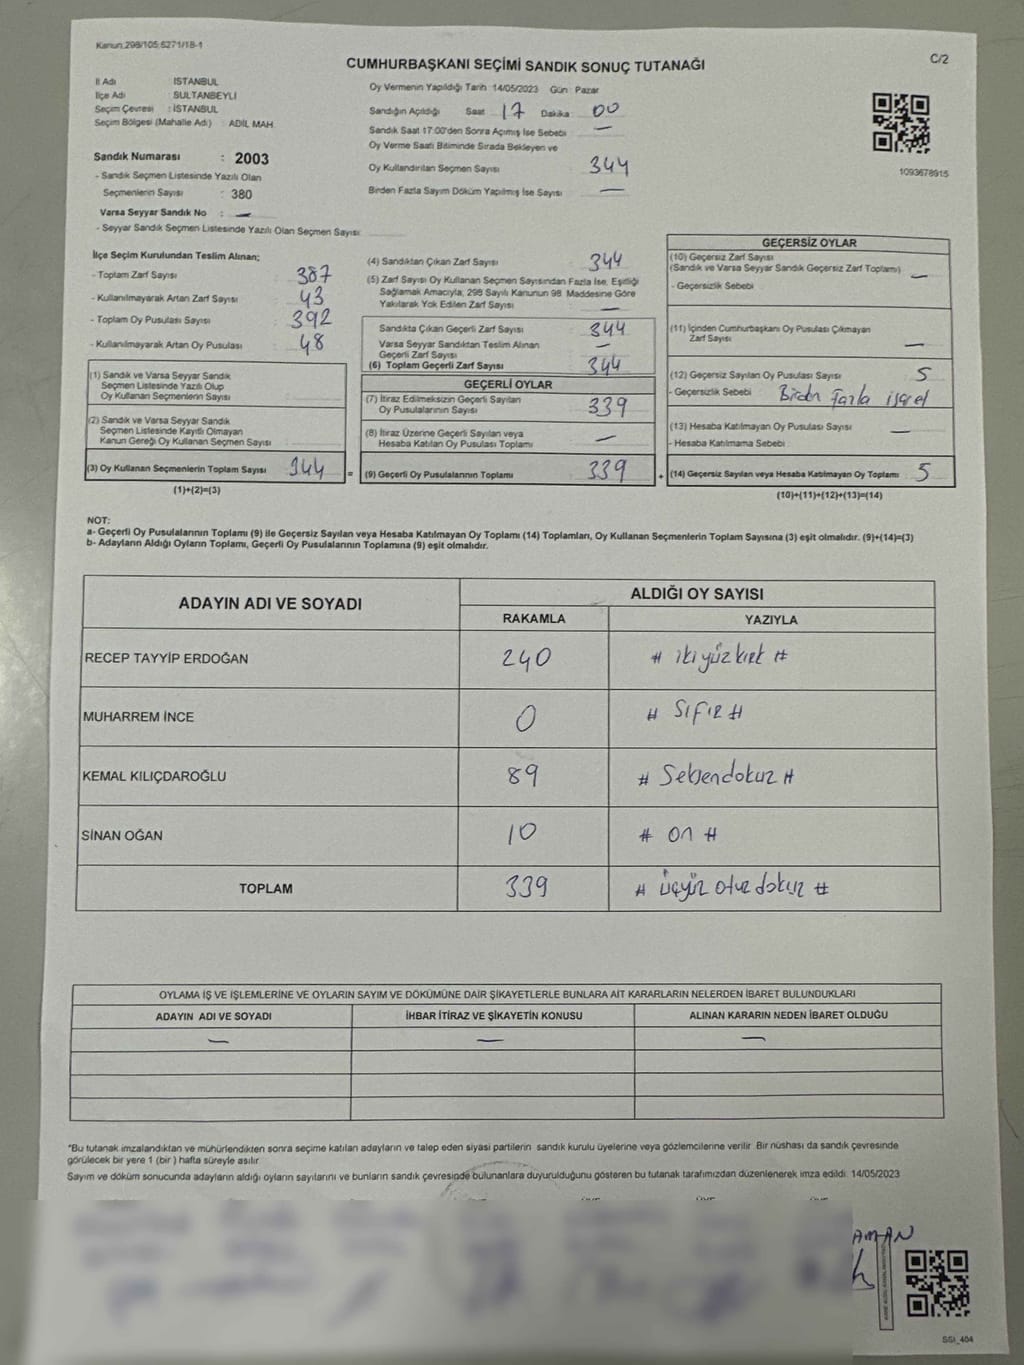 Kanun:298/105;6271/18-1
C/2
CUMHURBAŞKANI SEÇİMİ SANDIK SONUÇ TUTANAĞI
İl Adı : İSTANBUL
İlçe Adı : SULTANBEYLİ
Seçim Çevresi : İSTANBUL
Seçim Bölgesi (Mahalle Adı) : ADİL MAH.
Sandık Numarası : 2003
- Sandık Seçmen Listesinde Yazılı Olan
Seçmenlerin Sayısı : 380
Varsa Seyyar Sandık No : —
- Seyyar Sandık Seçmen Listesinde Yazılı Olan Seçmen Sayısı:
Oy Vermenin Yapıldığı Tarih 14/05/2023 Gün : Pazar
Sandığın Açıldığı Saat 17 Dakika 00
Sandık Saat 17:00'den Sonra Açımış İse Sebebi —
Oy Verme Saati Bitiminde Sırada Bekleyen ve
Oy Kullandırılan Seçmen Sayısı 344
Birden Fazla Sayım Döküm Yapılmış İse Sayısı —
1093678915
İlçe Seçim Kurulundan Teslim Alınan;
- Toplam Zarf Sayısı 387
- Kullanılmayarak Artan Zarf Sayısı 43
- Toplam Oy Pusulası Sayısı 392
- Kullanılmayarak Artan Oy Pusulası 48
(1) Sandık ve Varsa Seyyar Sandık
Seçmen Listesinde Yazılı Olup
Oy Kullanan Seçmenlerin Sayısı
(2) Sandık ve Varsa Seyyar Sandık
Seçmen Listesinde Kayıtlı Olmayan
Kanun Gereği Oy Kullanan Seçmen Sayısı
(3) Oy Kullanan Seçmenlerin Toplam Sayısı 344 =
(1)+(2)=(3)
(4) Sandıktan Çıkan Zarf Sayısı 344
(5) Zarf Sayısı Oy Kullanan Seçmen Sayısından Fazla İse, Eşitliği
Sağlamak Amacıyla, 298 Sayılı Kanunun 98. Maddesine Göre
Yakılarak Yok Edilen Zarf Sayısı —
Sandıkta Çıkan Geçerli Zarf Sayısı 344
Varsa Seyyar Sandıktan Teslim Alınan
Geçerli Zarf Sayısı —
(6) Toplam Geçerli Zarf Sayısı 344
GEÇERLİ OYLAR
(7) İtiraz Edilmeksizin Geçerli Sayılan
Oy Pusulalarının Sayısı 339
(8) İtiraz Üzerine Geçerli Sayılan veya
Hesaba Katılan Oy Pusulası Toplamı —
(9) Geçerli Oy Pusulalarının Toplamı 339 +
GEÇERSİZ OYLAR
(10) Geçersiz Zarf Sayısı
(Sandık ve Varsa Seyyar Sandık Geçersiz Zarf Toplamı) —
- Geçersizlik Sebebi
(11) İçinden Cumhurbaşkanı Oy Pusulası Çıkmayan
Zarf Sayısı —
(12) Geçersiz Sayılan Oy Pusulası Sayısı 5
- Geçersizlik Sebebi Birden fazla işaret
(13) Hesaba Katılmayan Oy Pusulası Sayısı —
- Hesaba Katılmama Sebebi
(14) Geçersiz Sayılan veya Hesaba Katılmayan Oy Toplamı 5
(10)+(11)+(12)+(13)=(14)
NOT:
a- Geçerli Oy Pusulalarının Toplamı (9) ile Geçersiz Sayılan veya Hesaba Katılmayan Oy Toplamı (14) Toplamları, Oy Kullanan Seçmenlerin Toplam Sayısına (3) eşit olmalıdır. (9)+(14)=(3)
b- Adayların Aldığı Oyların Toplamı, Geçerli Oy Pusulalarının Toplamına (9) eşit olmalıdır.
ADAYIN ADI VE SOYADI
ALDIĞI OY SAYISI
RAKAMLA YAZIYLA
RECEP TAYYİP ERDOĞAN 240 # ikiyüzkırk #
MUHARREM İNCE 0 # Sıfır #
KEMAL KILIÇDAROĞLU 89 # Seksendokuz #
SİNAN OĞAN 10 # on #
TOPLAM 339 # üçyüz otuz dokuz #
OYLAMA İŞ VE İŞLEMLERİNE VE OYLARIN SAYIM VE DÖKÜMÜNE DAİR ŞİKAYETLERLE BUNLARA AİT KARARLARIN NELERDEN İBARET BULUNDUKLARI
ADAYIN ADI VE SOYADI İHBAR İTİRAZ VE ŞİKAYETİN KONUSU ALINAN KARARIN NEDEN İBARET OLDUĞU
— — —
*Bu tutanak imzalandıktan ve mühürlendikten sonra seçime katılan adayların ve talep eden siyasi partilerin sandık kurulu üyelerine veya gözlemcilerine verilir. Bir nüshası da sandık çevresinde
görülecek bir yere 1 (bir ) hafta süreyle asılır.
Sayım ve döküm sonucunda adayların aldığı oyların sayılarını ve bunların sandık çevresinde bulunanlara duyurulduğunu gösteren bu tutanak tarafımızdan düzenlenerek imza edildi. 14/05/2023
AMAN
SSI_404